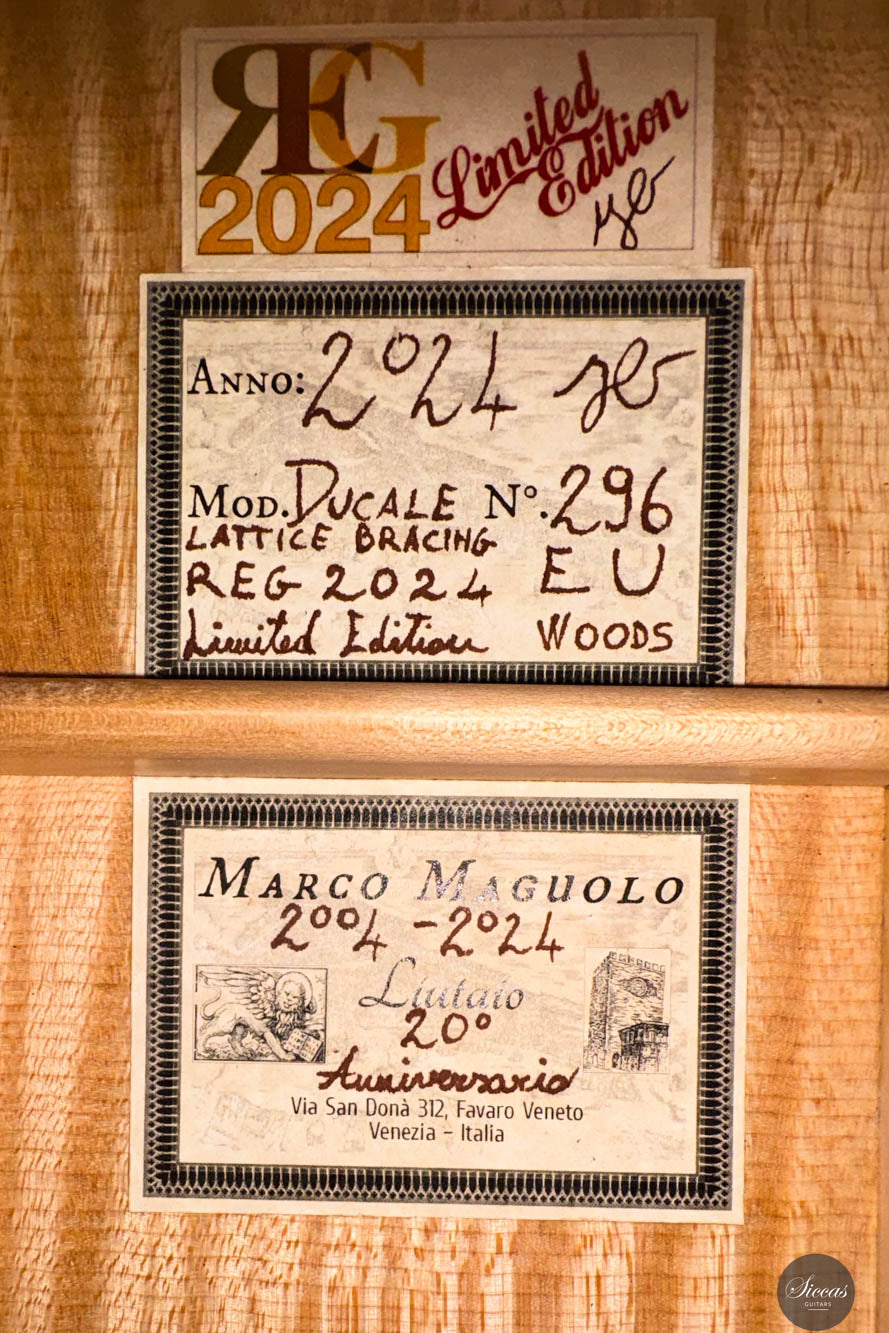 REG
2024
Limited
Edition
Anno: 2024
Mod. Ducale N°. 296
LATTICE BRACING
REG 2024 EU
Limited Edition WOODS
MARCO MAGUOLO
2004 - 2024
Liutaio
20°
Anniversario
Via San Donà 312, Favaro Veneto
Venezia – Italia
Siccas
GUITARS